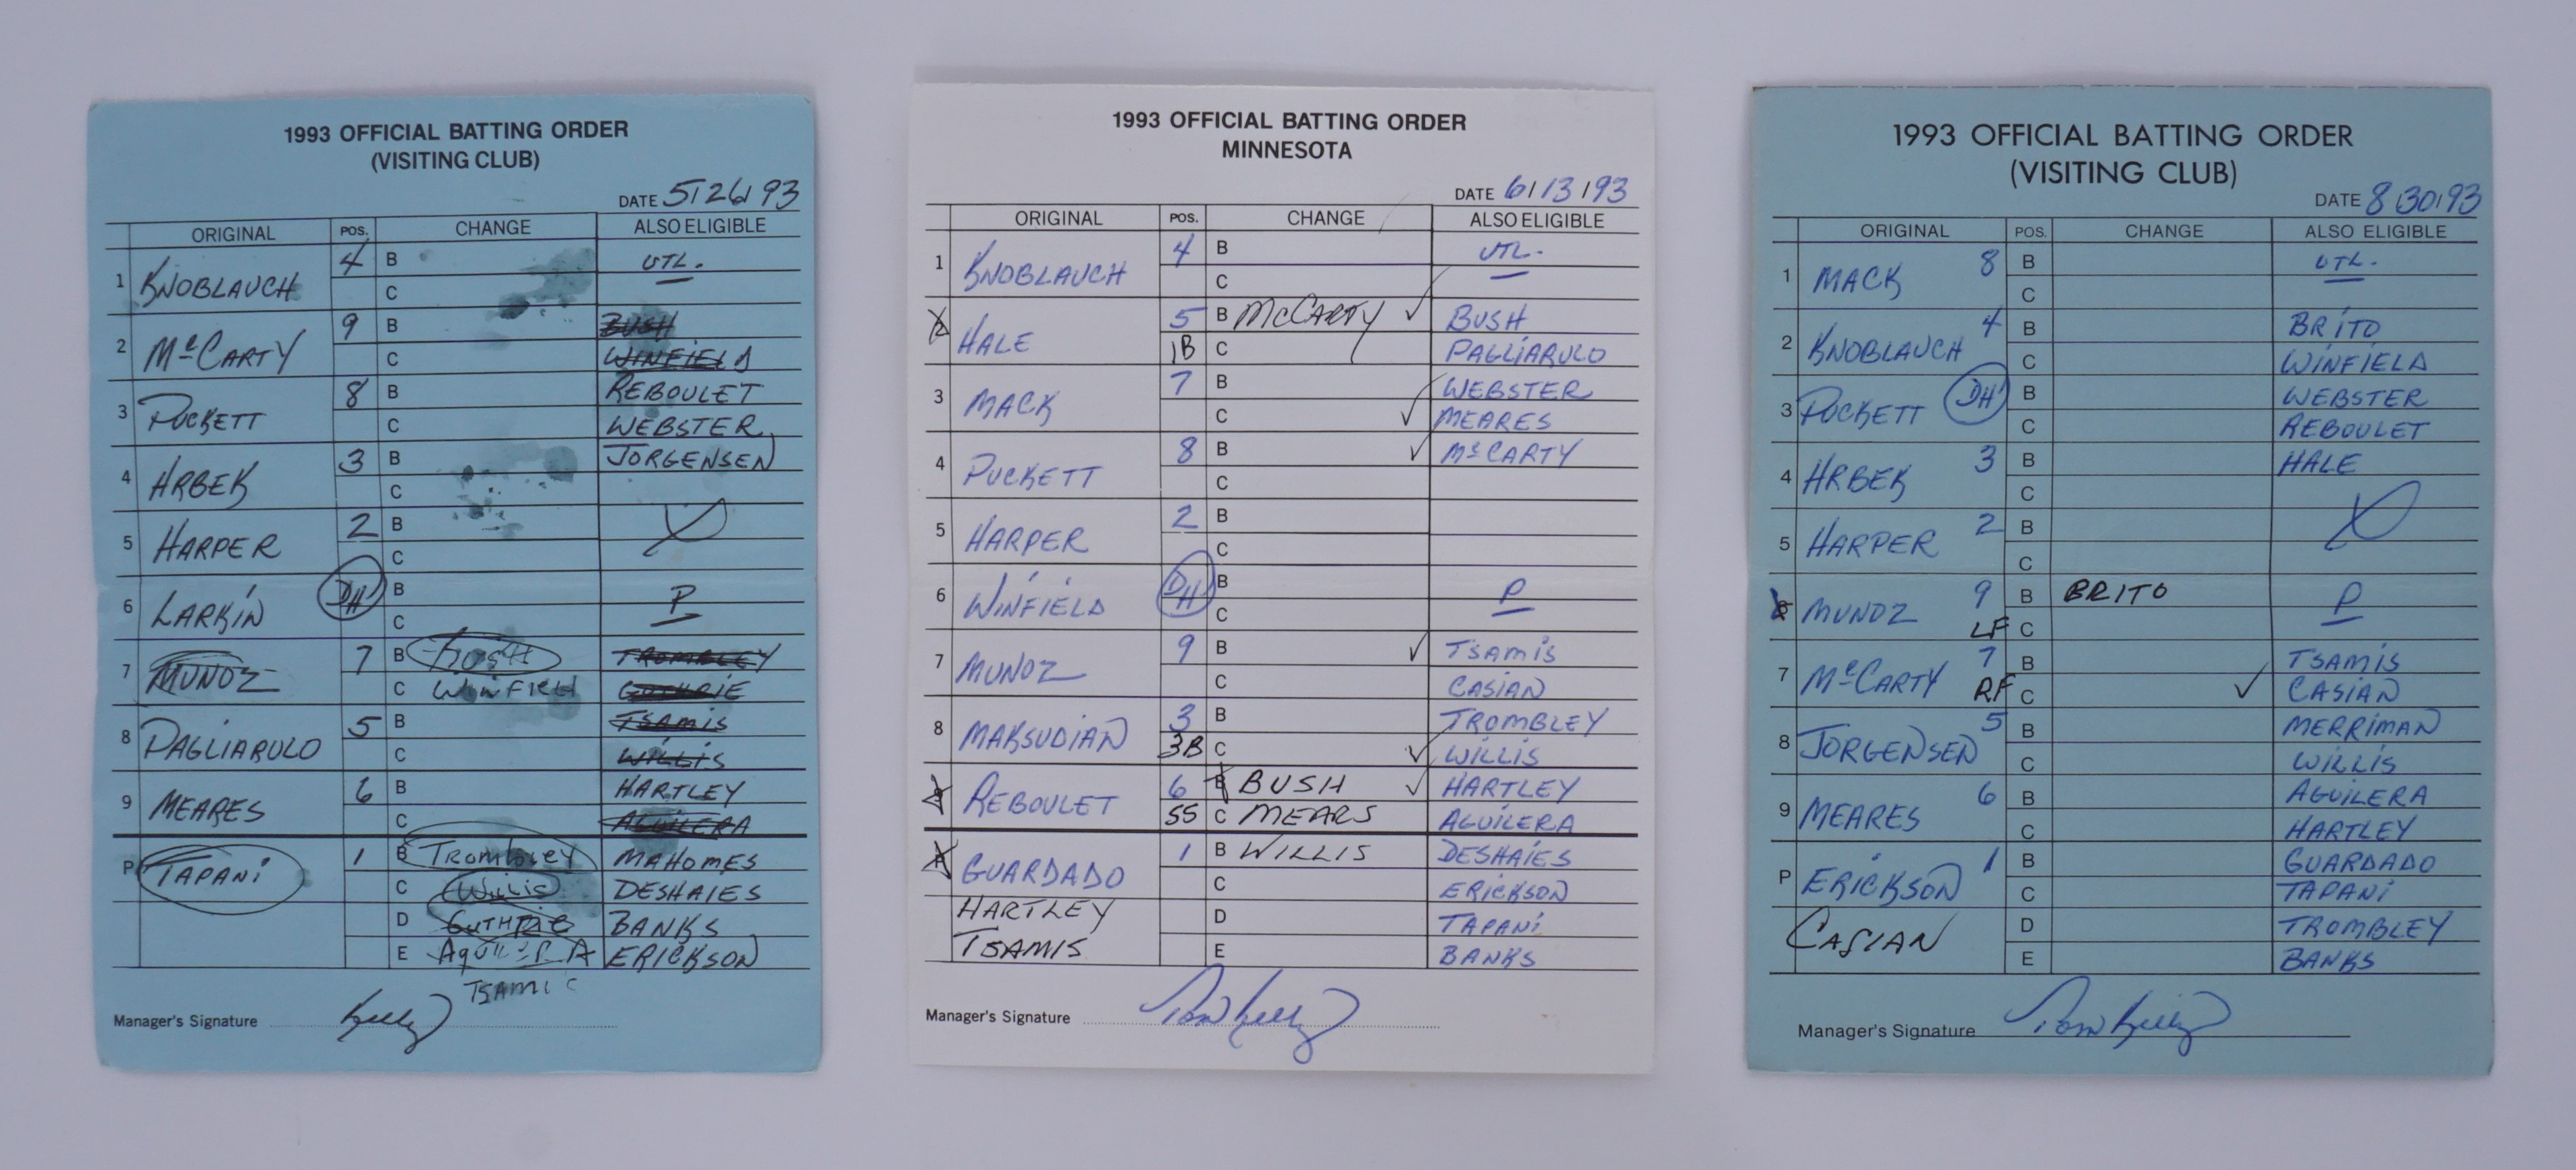 1993 OFFICIAL BATTING ORDER
(VISITING CLUB)
DATE 5/26/93
ORIGINAL POS. CHANGE ALSO ELIGIBLE
1 KNOBLAUCH 4 B UTL.
C
2 McCARTY 9 B BUSH
C WINFIELD
3 PUCKETT 8 B REBOULET
C WEBSTER
4 HRBEK 3 B JORGENSEN
C
5 HARPER 2 B
C
6 LARKIN DH B P
C
7 MUNOZ 7 B BUSH TROMBLEY
C WINFIELD GUTHRIE
8 PAGLIARULO 5 B TSAMIS
C WILLIS
9 MEARES 6 B HARTLEY
C AGUILERA
P TAPANI 1 B TROMBLEY MAHOMES
C WILLIS DESHAIES
D GUTHRIE BANKS
E AGUILERA ERICKSON
TSAMIS
Manager's Signature Kelly
1993 OFFICIAL BATTING ORDER
MINNESOTA
DATE 6/13/93
ORIGINAL POS. CHANGE ALSO ELIGIBLE
1 KNOBLAUCH 4 B UTL.
C
2 HALE 5 B McCARTY BUSH
1B C PAGLIARULO
3 MACK 7 B WEBSTER
C MEARES
4 PUCKETT 8 B McCARTY
C
5 HARPER 2 B
C
6 WINFIELD DH B P
C
7 MUNOZ 9 B TSAMIS
C CASIAN
8 MAKSUDIAN 3 B TROMBLEY
3B C WILLIS
9 REBOULET 6 B BUSH HARTLEY
SS C MEARS AGUILERA
P GUARDADO 1 B WILLIS DESHAIES
C ERICKSON
HARTLEY D TAPANI
TSAMIS E BANKS
Manager's Signature Tom Kelly
1993 OFFICIAL BATTING ORDER
(VISITING CLUB)
DATE 8/30/93
ORIGINAL POS. CHANGE ALSO ELIGIBLE
1 MACK 8 B UTL.
C
2 KNOBLAUCH 4 B BRITO
C WINFIELD
3 PUCKETT DH B WEBSTER
C REBOULET
4 HRBEK 3 B HALE
C
5 HARPER 2 B
C
6 MUNOZ 9 B BRITO P
LF C
7 McCARTY 7 B TSAMIS
RF C CASIAN
8 JORGENSEN 5 B MERRIMAN
C WILLIS
9 MEARES 6 B AGUILERA
C HARTLEY
P ERICKSON 1 B GUARDADO
C TAPANI
CASIAN D TROMBLEY
E BANKS
Manager's Signature Tom Kelly